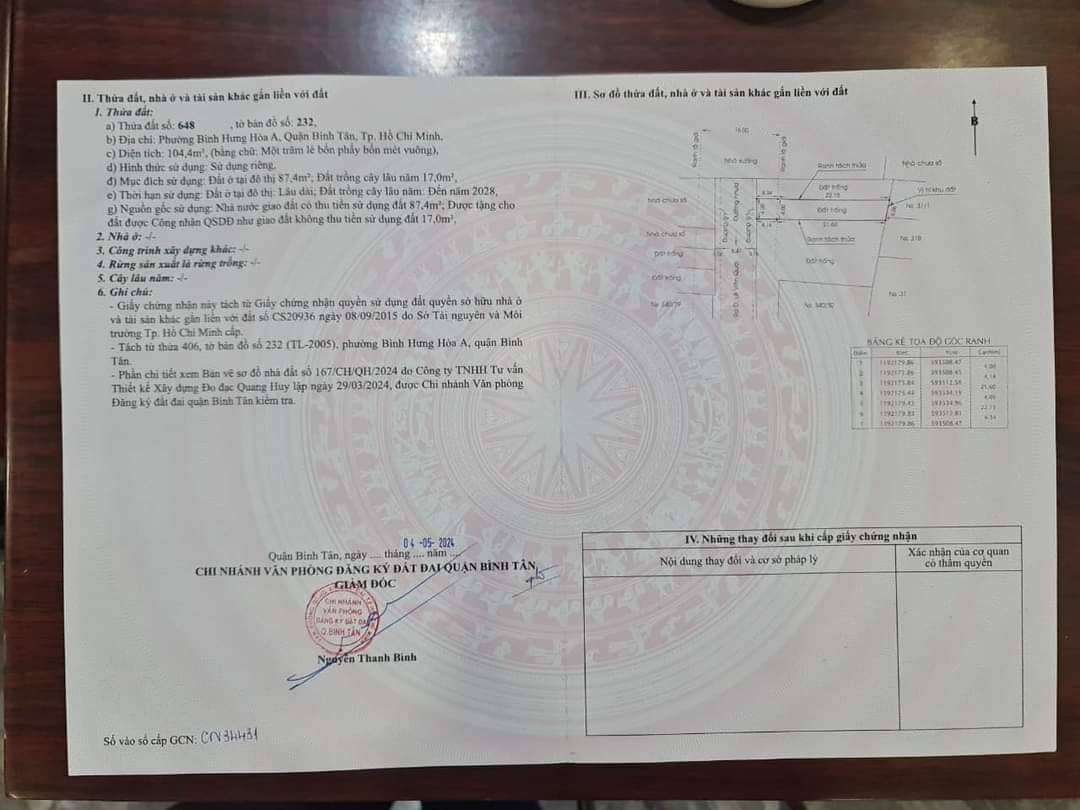 II. Thửa đất, nhà ở và tài sản khác gắn liền với đất
1. Thửa đất:
a) Thửa đất số: 648 , tờ bản đồ số: 232,
b) Địa chỉ: Phường Bình Hưng Hòa A, Quận Bình Tân, Tp. Hồ Chí Minh,
c) Diện tích: 104,4m², (bằng chữ: Một trăm lẻ bốn phẩy bốn mét vuông),
d) Hình thức sử dụng: Sử dụng riêng,
đ) Mục đích sử dụng: Đất ở tại đô thị 87,4m²; Đất trồng cây lâu năm 17,0m²,
e) Thời hạn sử dụng: Đất ở tại đô thị: Lâu dài; Đất trồng cây lâu năm: Đến năm 2028,
g) Nguồn gốc sử dụng: Nhà nước giao đất có thu tiền sử dụng đất 87,4m²; Được tặng cho
đất được Công nhận QSDĐ như giao đất không thu tiền sử dụng đất 17,0m².
2. Nhà ở: -/-
3. Công trình xây dựng khác: -/-
4. Rừng sản xuất là rừng trồng: -/-
5. Cây lâu năm: -/-
6. Ghi chú:
- Giấy chứng nhận này tách từ Giấy chứng nhận quyền sử dụng đất quyền sở hữu nhà ở
và tài sản khác gắn liền với đất số CS20936 ngày 08/09/2015 do Sở Tài nguyên và Môi
trường Tp. Hồ Chí Minh cấp.
- Tách từ thửa 406, tờ bản đồ số 232 (TL-2005), phường Bình Hưng Hòa A, quận Bình
Tân.
- Phần chi tiết xem Bản vẽ sơ đồ nhà đất số 167/CH/QH/2024 do Công ty TNHH Tư vấn
Thiết kế Xây dựng Đo đạc Quang Huy lập ngày 29/03/2024, được Chi nhánh Văn phòng
Đăng ký đất đai quận Bình Tân kiểm tra.
04-05-2024
Quận Bình Tân, ngày .... tháng .... năm ....
CHI NHÁNH VĂN PHÒNG ĐĂNG KÝ ĐẤT ĐAI QUẬN BÌNH TÂN
GIÁM ĐỐC
CHI NHÁNH
VĂN PHÒNG
ĐĂNG KÝ ĐẤT ĐAI
Q.BÌNH TÂN
Nguyễn Thanh Bình
Số vào sổ cấp GCN: CN34431
III. Sơ đồ thửa đất, nhà ở và tài sản khác gắn liền với đất
B
Ranh lộ giới
Nhà xưởng
Ranh lộ giới
Ranh tách thửa
Nhà chưa số
Nhà chưa số
Đường nhựa
Đất trống
Vị trí khu đất
No. 31/1
Đất trống
21.60
Nhà chưa số
Ranh tách thửa
No. 31B
Đất trống
Đất trống
Đất trống
No. 31
BẢNG KÊ TỌA ĐỘ GÓC RANH
Điểm X(m) Y(m) Cạnh(m)
1 1192179.86 593508.47
4.00
2 1192175.86 593508.45
4.14
3 593512.59
21.60
4 593534.19
5 593534.96
6 1192179.83 593512.81
4.34
1 1192179.86 593508.47
IV. Những thay đổi sau khi cấp giấy chứng nhận
Nội dung thay đổi và cơ sở pháp lý
Xác nhận của cơ quan
có thẩm quyền